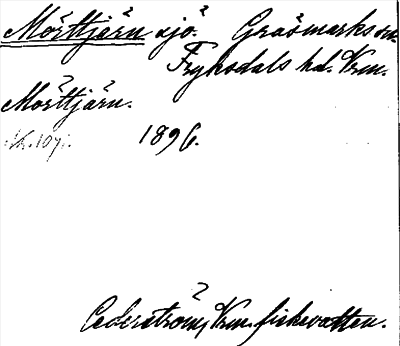 Mörttjärn sjö. Gräsmarks sn.
Fryksdals hd. Vrm.
Mörttjärn.
1896.
Cederström, Vrm. fiskevatten.